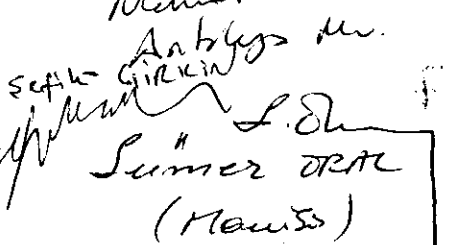 Antalya Mv.
Şefik ÇİRKİN
S. Oral
Sümer ORAL
(Manisa)